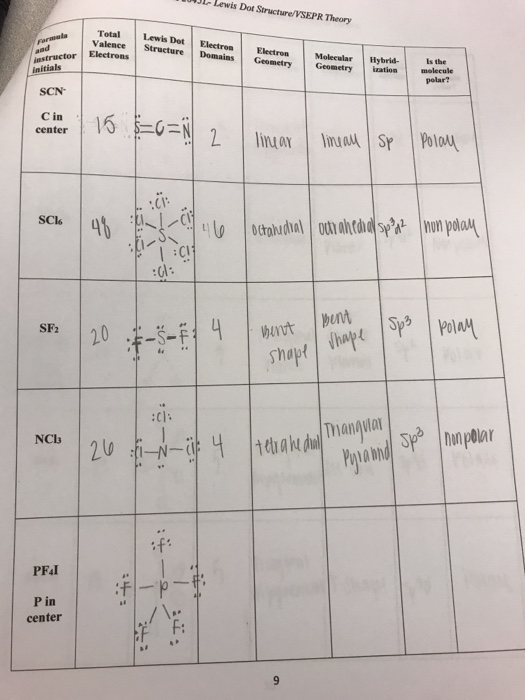 Lewis Dot Structure/VSEPR Theory
Formula and instructor initials
Total Valence Electrons
Lewis Dot Structure
Electron Domains
Electron Geometry
Molecular Geometry
Hybrid-ization
Is the molecule polar?
SCN-
C in center
S=C=N
2
linear
linear
sp
polar
SCl6
48
:Cl:
:Cl
Cl:
S
:Cl
:Cl:
:Cl:
6
octahedral
octahedral
sp³d²
non polar
SF2
20
:F-S-F:
4
Bent shape
Bent shape
sp3
polar
NCl3
26
:Cl:
:Cl-N-Cl:
4
tetrahedral
Triangular pyramid
sp³
nonpolar
PF4I
P in center
:F:
:F-P-F:
:F
F:
9